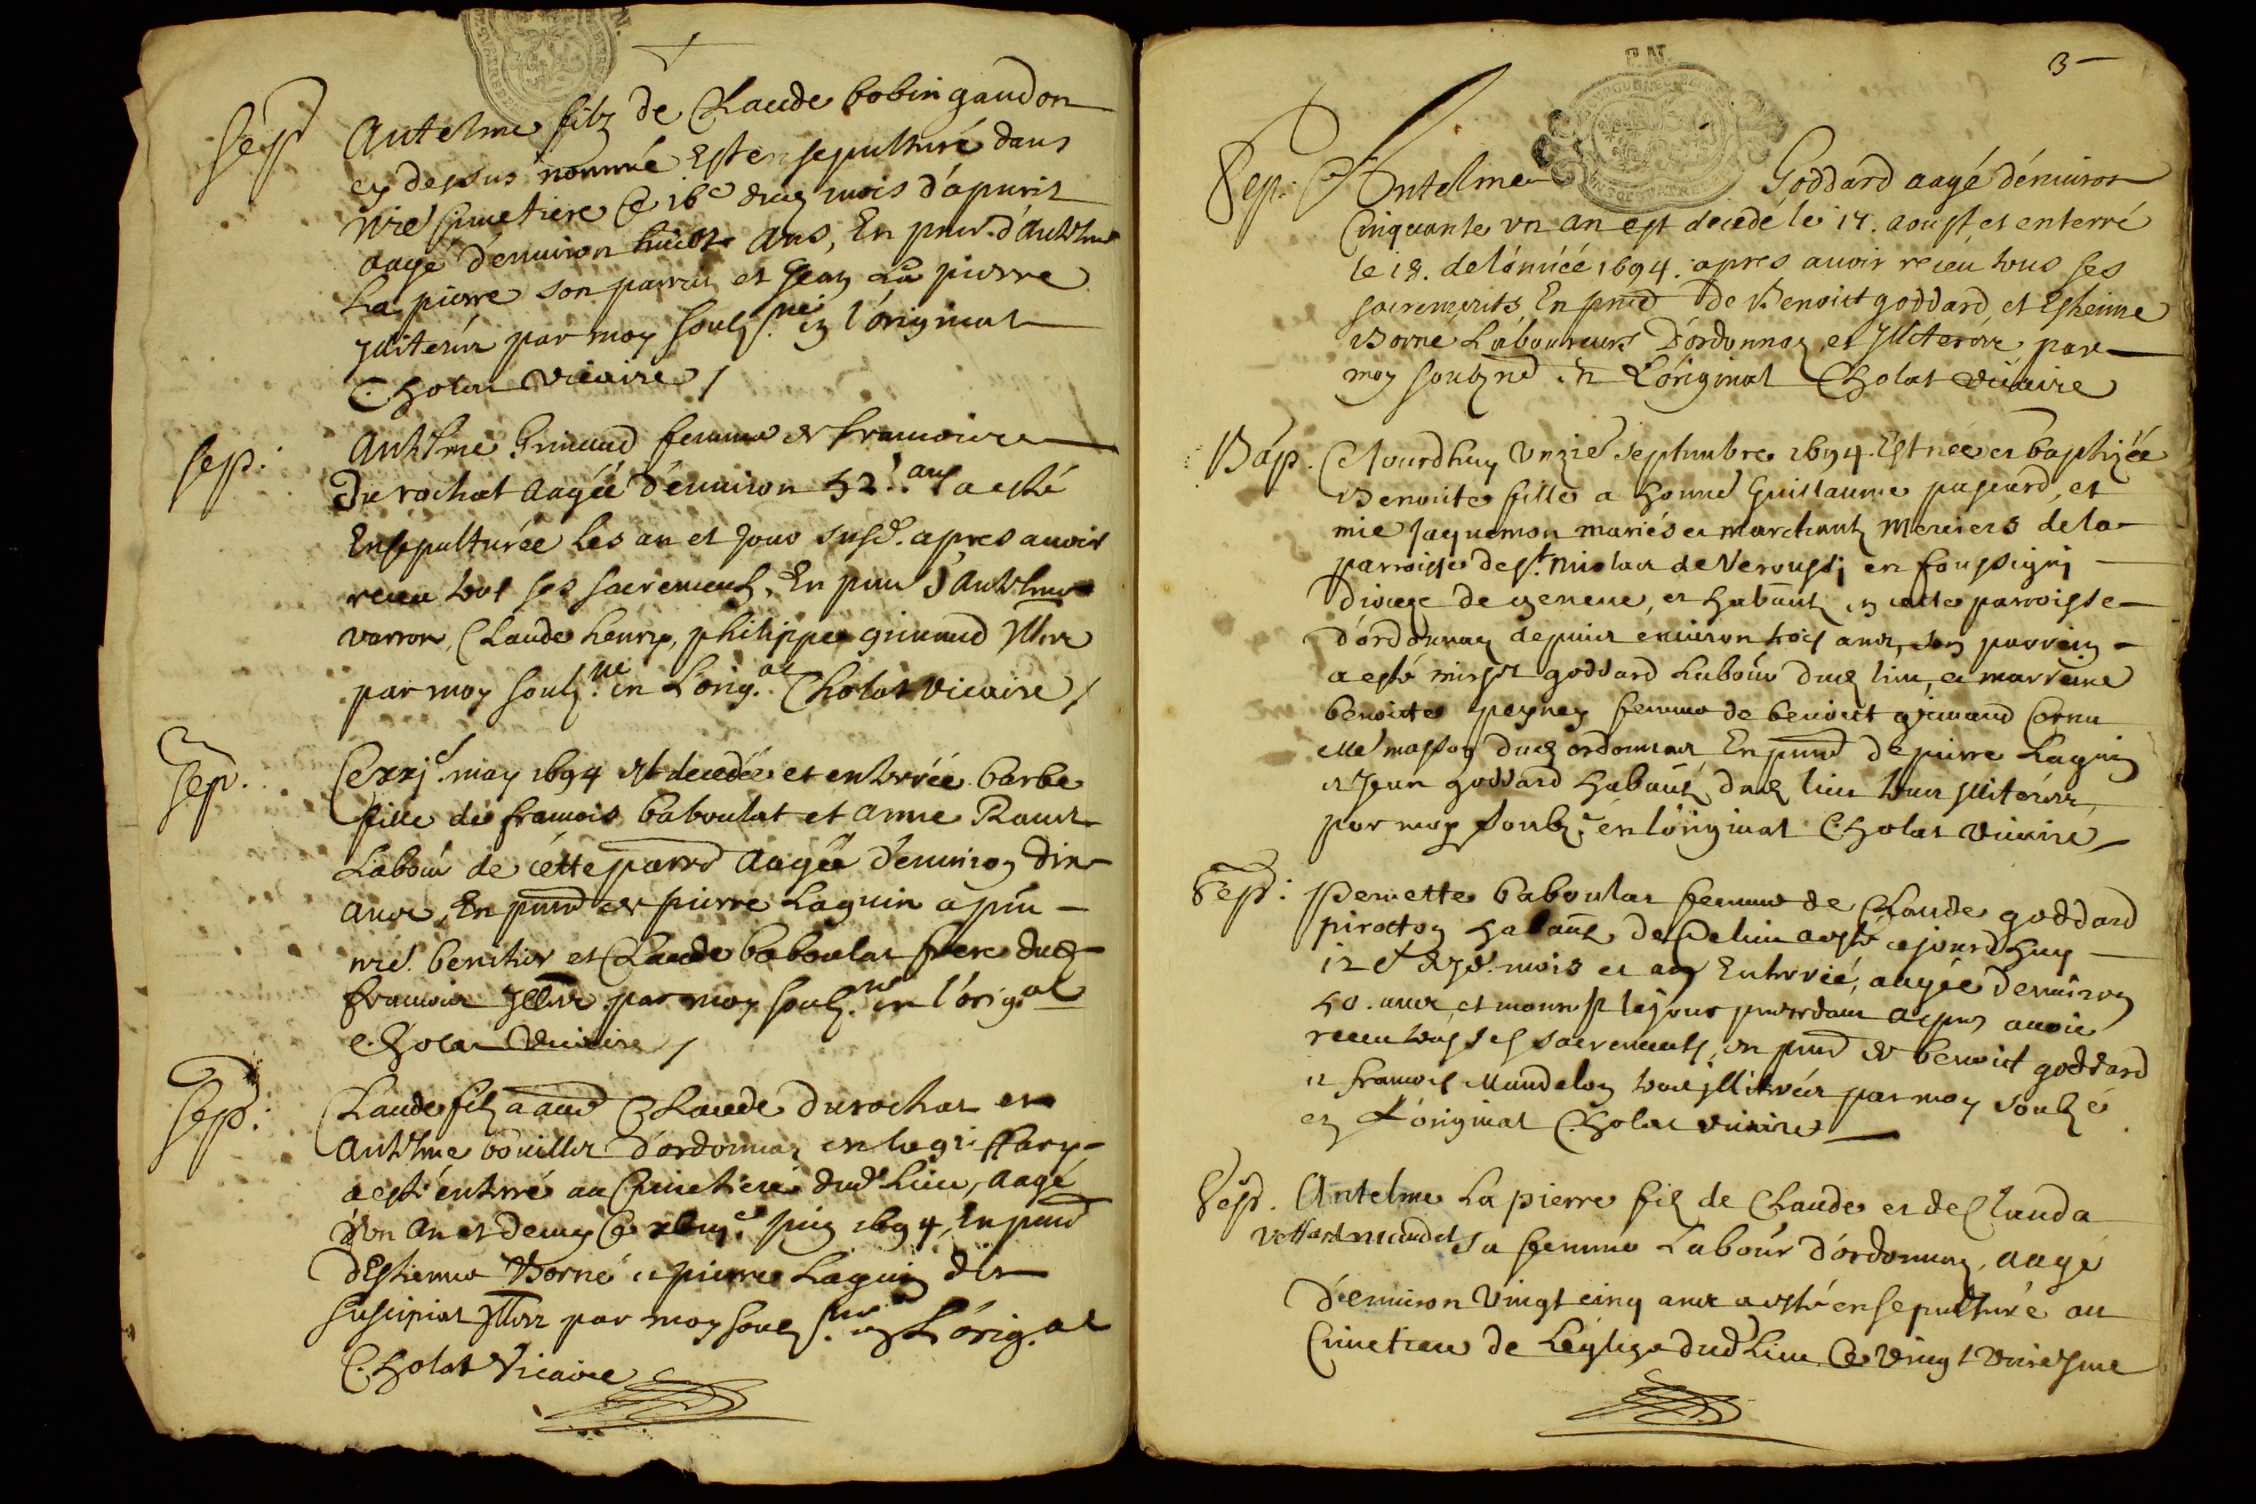 Sep.
Antelme filz de Claude bobin gaudon
cy dessus nommé Est ensepulturé dans
nre Cimetiere Ce 16e dud mois d'apuril
aagé d'enuiron huict ans, En pnce d'Antelme
La pierre son parrin et Jean La pierre
Jlliterés par moy soubsné en l'original
Cholat vicaire /
Sep.
Antelme Grimaud femme de francois
Du rochat Aagée d'enuiron 52. ans a esté
Ensepulturée les an et jour susd. apres auoir
receu tous ses sacrements, En pnce d'Antelme
varron, Claude henry, philippe grimaud Jllrez
par moy soubs.né en L'orig.al Cholat vicaire /
Sep.
Ce xxje may 1694 est decedée et enterrée barbe
fille de francois baboulat et anne
Labour de cette parre Aagée d'enuiron dix
ans, En pnce de pierre Laguin
nre. benitier et Claude baboulat frere dud
francois Jllrez par moy soubs.né en l'orig.al
Cholat Vicaire /
Sep.
Claude filz a Claude Durochat et
Antelme bouillier d'ordonnaz
a esté enterré au Cimetiere dud Lieu, aagé
d'Vn an et demy Ce Juin 1694, En pnce
d'Estienne Borné et pierre Laguin
Jllrez par moy soubs.né en L'orig.al
Cholat Vicaire
3
F.N.
Sep. Antelme Goddard aagé d'enuiron
Cinquante vn an est decedé le 17. aoust et enterré
le 18. de l'année 1694. apres auoir receu tous ses
sacrements, En pnce de Benoict goddard, et Estienne
Borné Laboureurs D'ordonnaz, et Jlliterés, par
moy soubzné En L'original Cholat vicaire
Bap. Cejourdhuy Vnzie Septembre 1694. Est née et baptizée
Benoite fille a honne Guillaume pugeard, et
mie Jaquemon mariés et marchants Merciers de la
parroisse de St. Nicolas de en foussigny
diocese de geneue, et habants en cette parroisse
d'ordonnaz depuis enuiron trois ans, son parrein
a esté goddard Labour dud lieu, et marreine
benoite peyney femme de benoict grimaud Cornu
dud ordonnaz, En pnce de pierre Laguin
et Jean goddard habants dud lieu tous Jlliterés,
par moy soubz.é en l'original Cholat Vicaire
Sep. Pernette baboulas femme de Claude goddard
pirotton habant de Ce lieu a esté cejourdhuy
12e mois et an Enterrée, aagée d'enuiron
50. ans, et mourust le jour precedant apres auoir
receu tous ses sacrements, en pnce de benoict goddard
et francois Mandelon tous jlliterés par moy soubzé
en L'original Cholat vicaire
Sep. Antelme La pierre filz de Claude et de Clauda
sa femme Labour d'ordonnaz, aagé
d'enuiron Vingt cinq ans a esté ensepulturé au
Cimetiere de L'eglize dud Lieu Ce Vingt